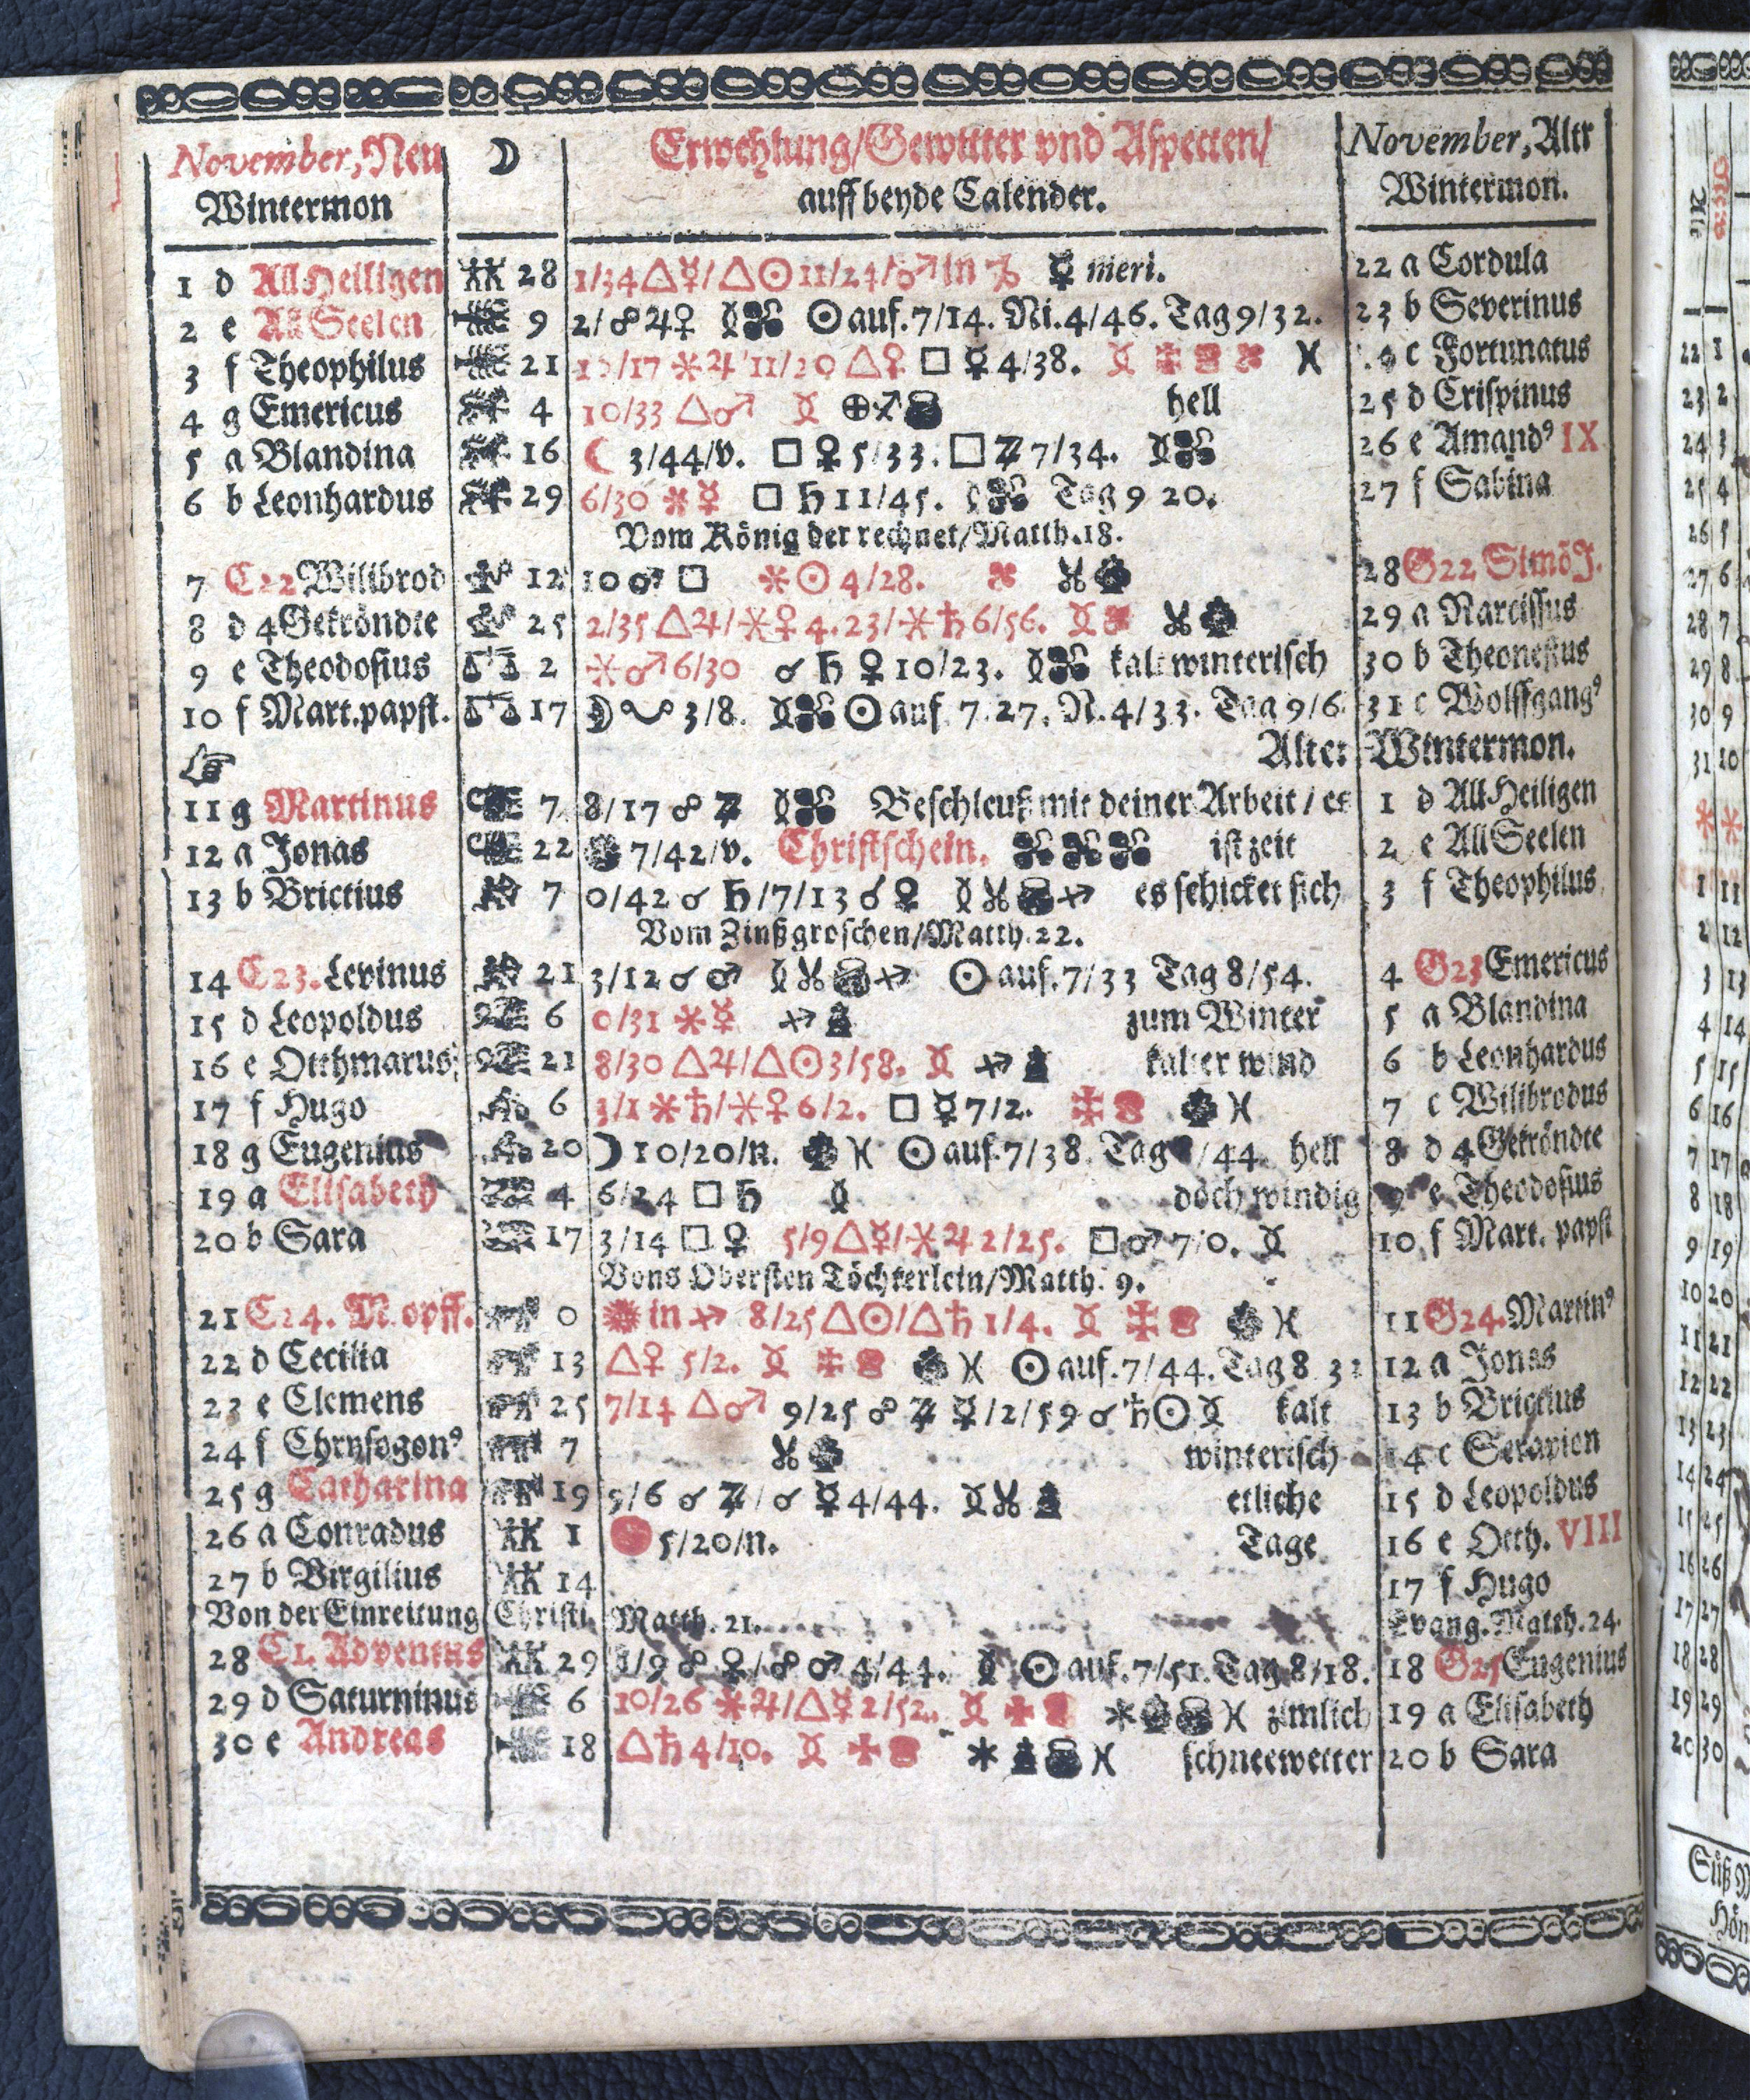 November, Neu ☽ Erwehlung/Gewitter vnd Aspecten/ November, Altr
Wintermon auff beyde Calender. Wintermon.
1 d All Heiligen 28 1/34 △☿/△☉ 11/24/♂ in ♑ ☿ meri. 22 a Cordula
2 e All Seelen 9 2/☍♃♀ ☉ auf. 7/14. Ni. 4/46. Tag 9/32. 23 b Severinus
3 f Theophilus 21 /17 ✶♃ 11/20 △♀ □ ☿ 4/38. ♓ c Fortunatus
4 g Emericus 4 10/33 △♂ ⊕♐ hell 25 d Crispinus
5 a Blandina 16 ☾ 3/44/v. □ ♀ 5/33. □ ♃ 7/34. 26 e Amandꝰ IX
6 b Leonhardus 29 6/30 ✶☿ □ ♄ 11/45. Tag 9 20. 27 f Sabina
Vom König der rechnet/Matth. 18.
7 C22 Wilibrod 12 10 ♂ □ ✶☉ 4/28. 28 G22 SimõJ.
8 d 4 Gekröndte 25 2/35 △♃/✶♀ 4.23/✶♄ 6/56. 29 a Narcissus
9 e Theodosius 2 ✶♂ 6/30 ☌ ♄ ♀ 10/23. kalt winterisch 30 b Theonestus
10 f Mart. papst. 17 3/8. ☉ auf. 7.27. N. 4/33. Tag 9/6. 31 c Wolffgangꝰ
☞ Alter Wintermon.
11 g Martinus 7 8/17 ☍ ♃ Beschleuß mit deiner Arbeit/es 1 d All Heiligen
12 a Jonas 22 7/42/v. Christschein. ist zeit 2 e All Seelen
13 b Brictius 7 0/42 ☌ ♄/7/13 ☌ ♀ ♐ es schicket sich 3 f Theophilus
Vom Zinßgroschen/Matth. 22.
14 C23. Levinus 21 3/12 ☌ ♂ ♐ ☉ auf. 7/33 Tag 8/54. 4 G23 Emericus
15 d Leopoldus 6 0/31 ✶☿ ♐ zum Winter 5 a Blandina
16 e Otthmarus 21 8/30 △♃/△☉ 3/58. ♐ kalter wind 6 b Leonhardus
17 f Hugo 6 3/1 ✶♄/✶♀ 6/2. □ ☿ 7/2. ♓ 7 c Wilibrodus
18 g Eugenius 20 ☽ 10/20/n. ♓ ☉ auf. 7/38. Tag /44 hell 8 d 4 Gekröndte
19 a Elisabeth 4 6/24 □ ♄ doch windig 9 e Theodosius
20 b Sara 17 3/14 □ ♀ 5/9 △☿/✶♃ 2/25. □♂ 7/0. 10 f Mart. papst
Vons Obersten Töchterlein/Matth. 9.
21 C24. M. opff. 0 in ♐ 8/25 △☉/△♄ 1/4. ♓ 11 G24. Martinꝰ
22 d Cecilia 13 △♀ 5/2. ♓ ☉ auf. 7/44. Tag 8 32 12 a Jonas
23 e Clemens 25 7/14 △♂ 9/25 ☍ ♃ ☿/2/59 ☌ ♄☉ kalt 13 b Brictius
24 f Chrysogonꝰ 7 winterisch 14 c Serapion
25 g Catharina 19 5/6 ☌ ♃/☌ ☿ 4/44. etliche 15 d Leopoldus
26 a Conradus 1 5/20/n. Tage 16 e Otth. VIII
27 b Virgilius 14 17 f Hugo
Von der Einreitung Christi Matth. 21. Evang. Matth. 24.
28 C1. Adventus 29 1/9 ☍ ♀/☍ ♂ 4/44. ☉ auf. 7/51. Tag 8/18. 18 G25 Eugenius
29 d Saturninus 6 10/26 ✶♃/△☿ 2/52. ♓ zimlich 19 a Elisabeth
30 e Andreas 18 △♄ 4/10. ♓ schneewetter 20 b Sara